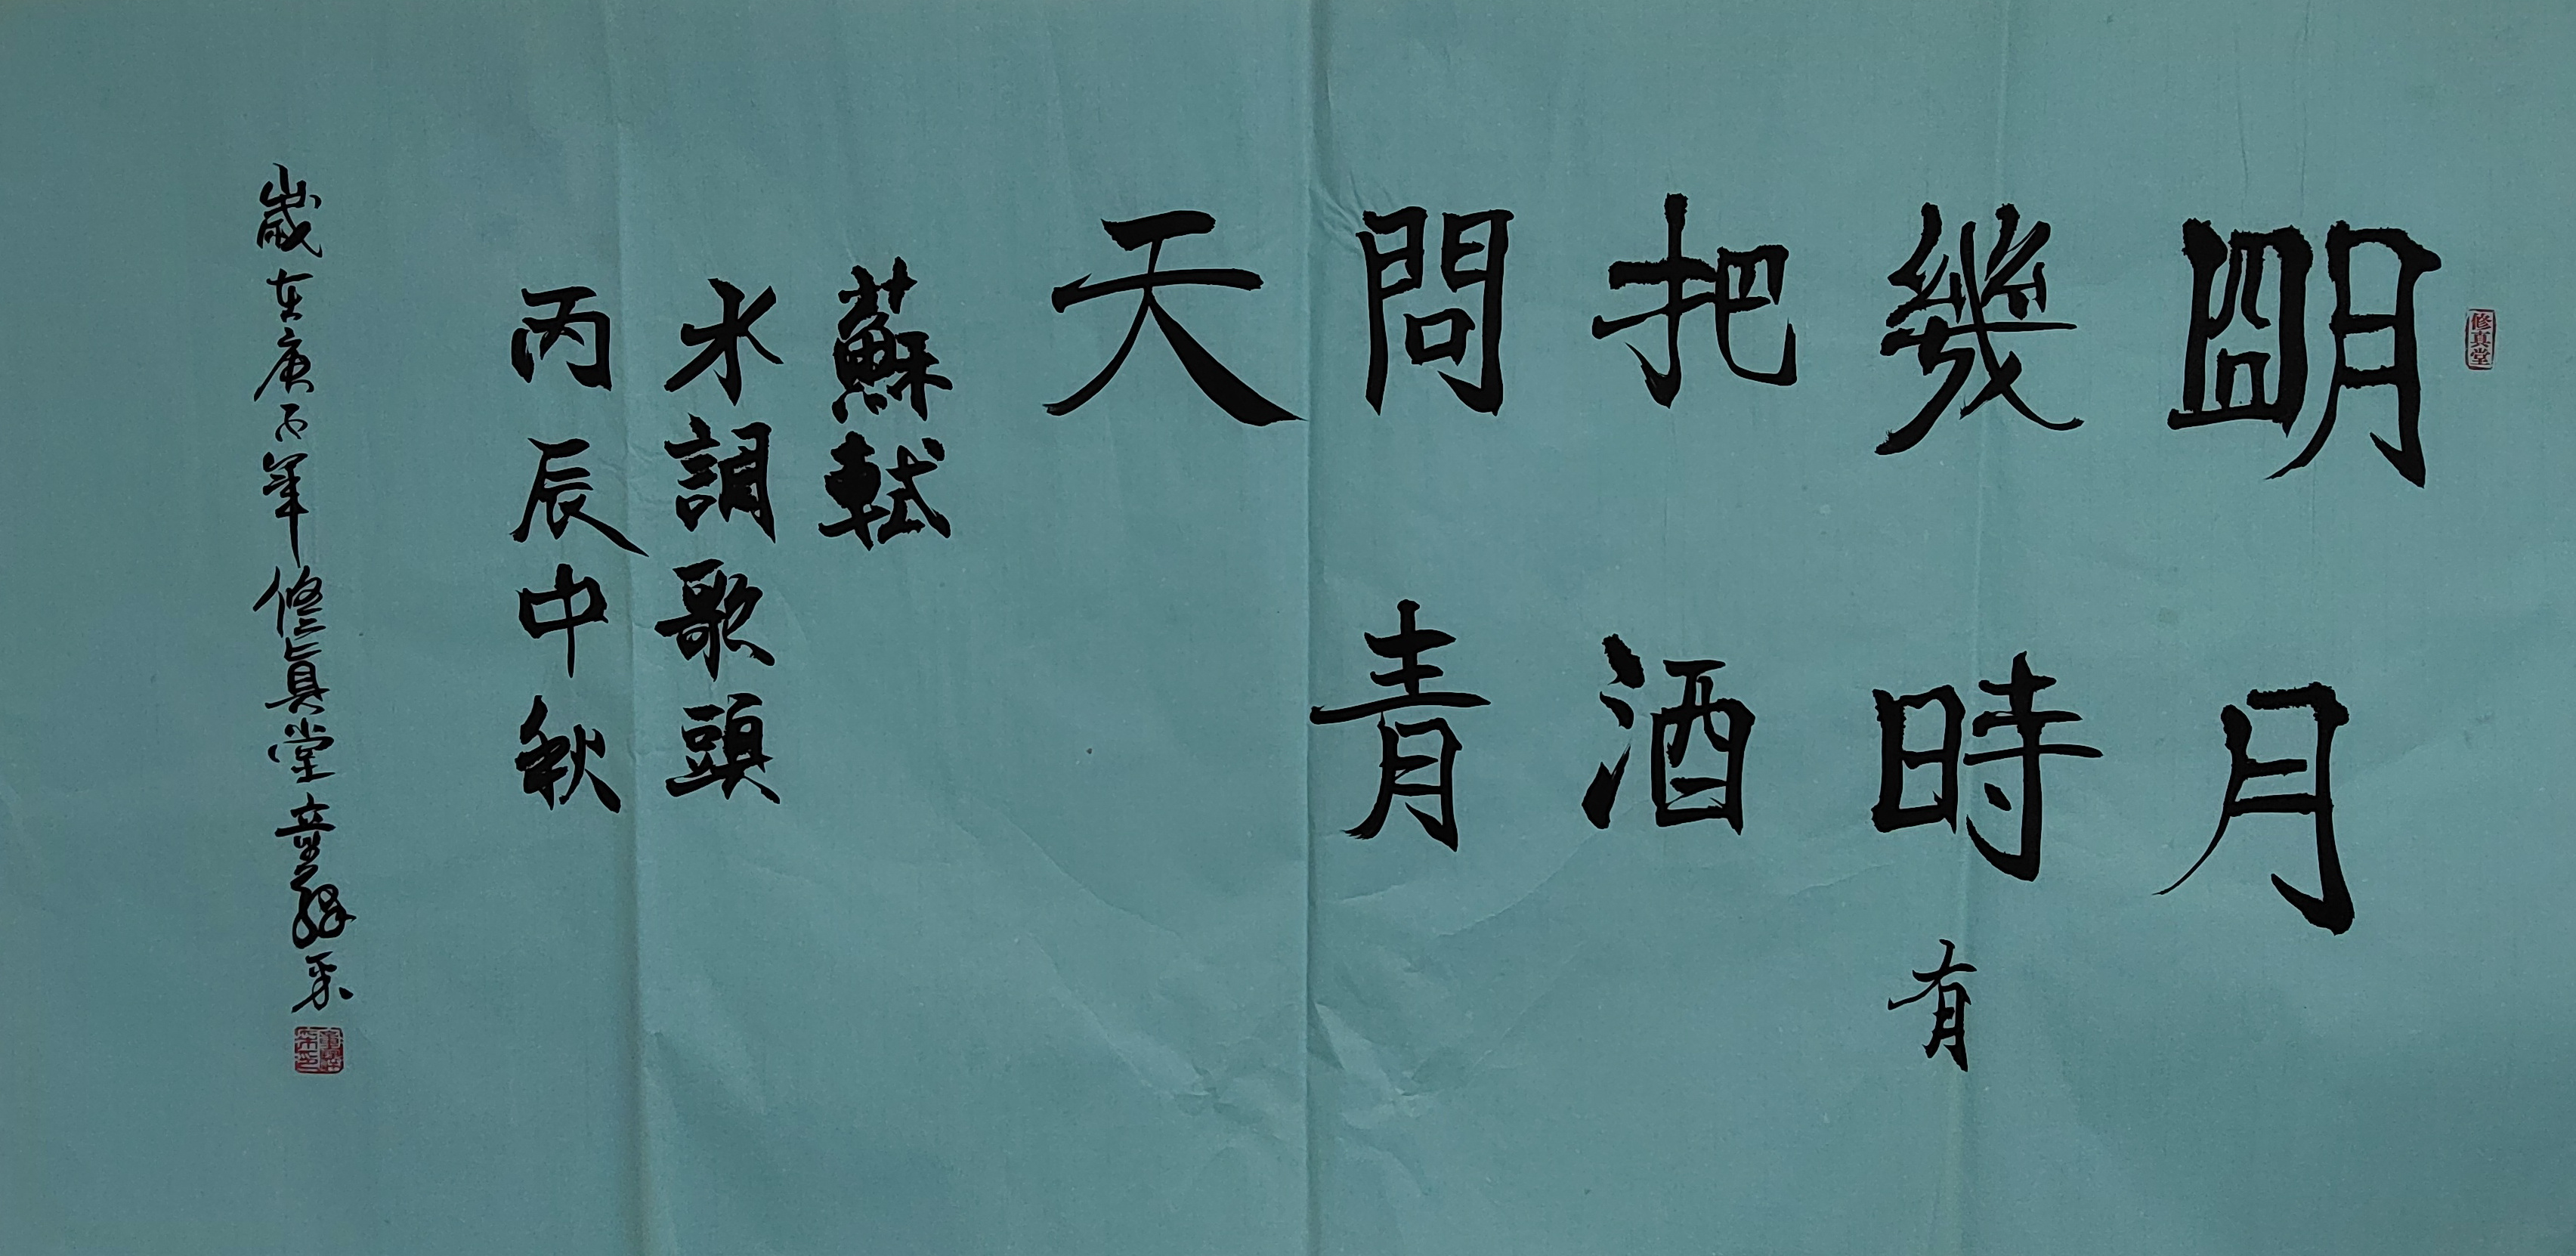 修真堂
朙月
幾時有
把酒
問青
天
蘇軾
水調歌頭
丙辰中秋
歲在庚子年修真堂童